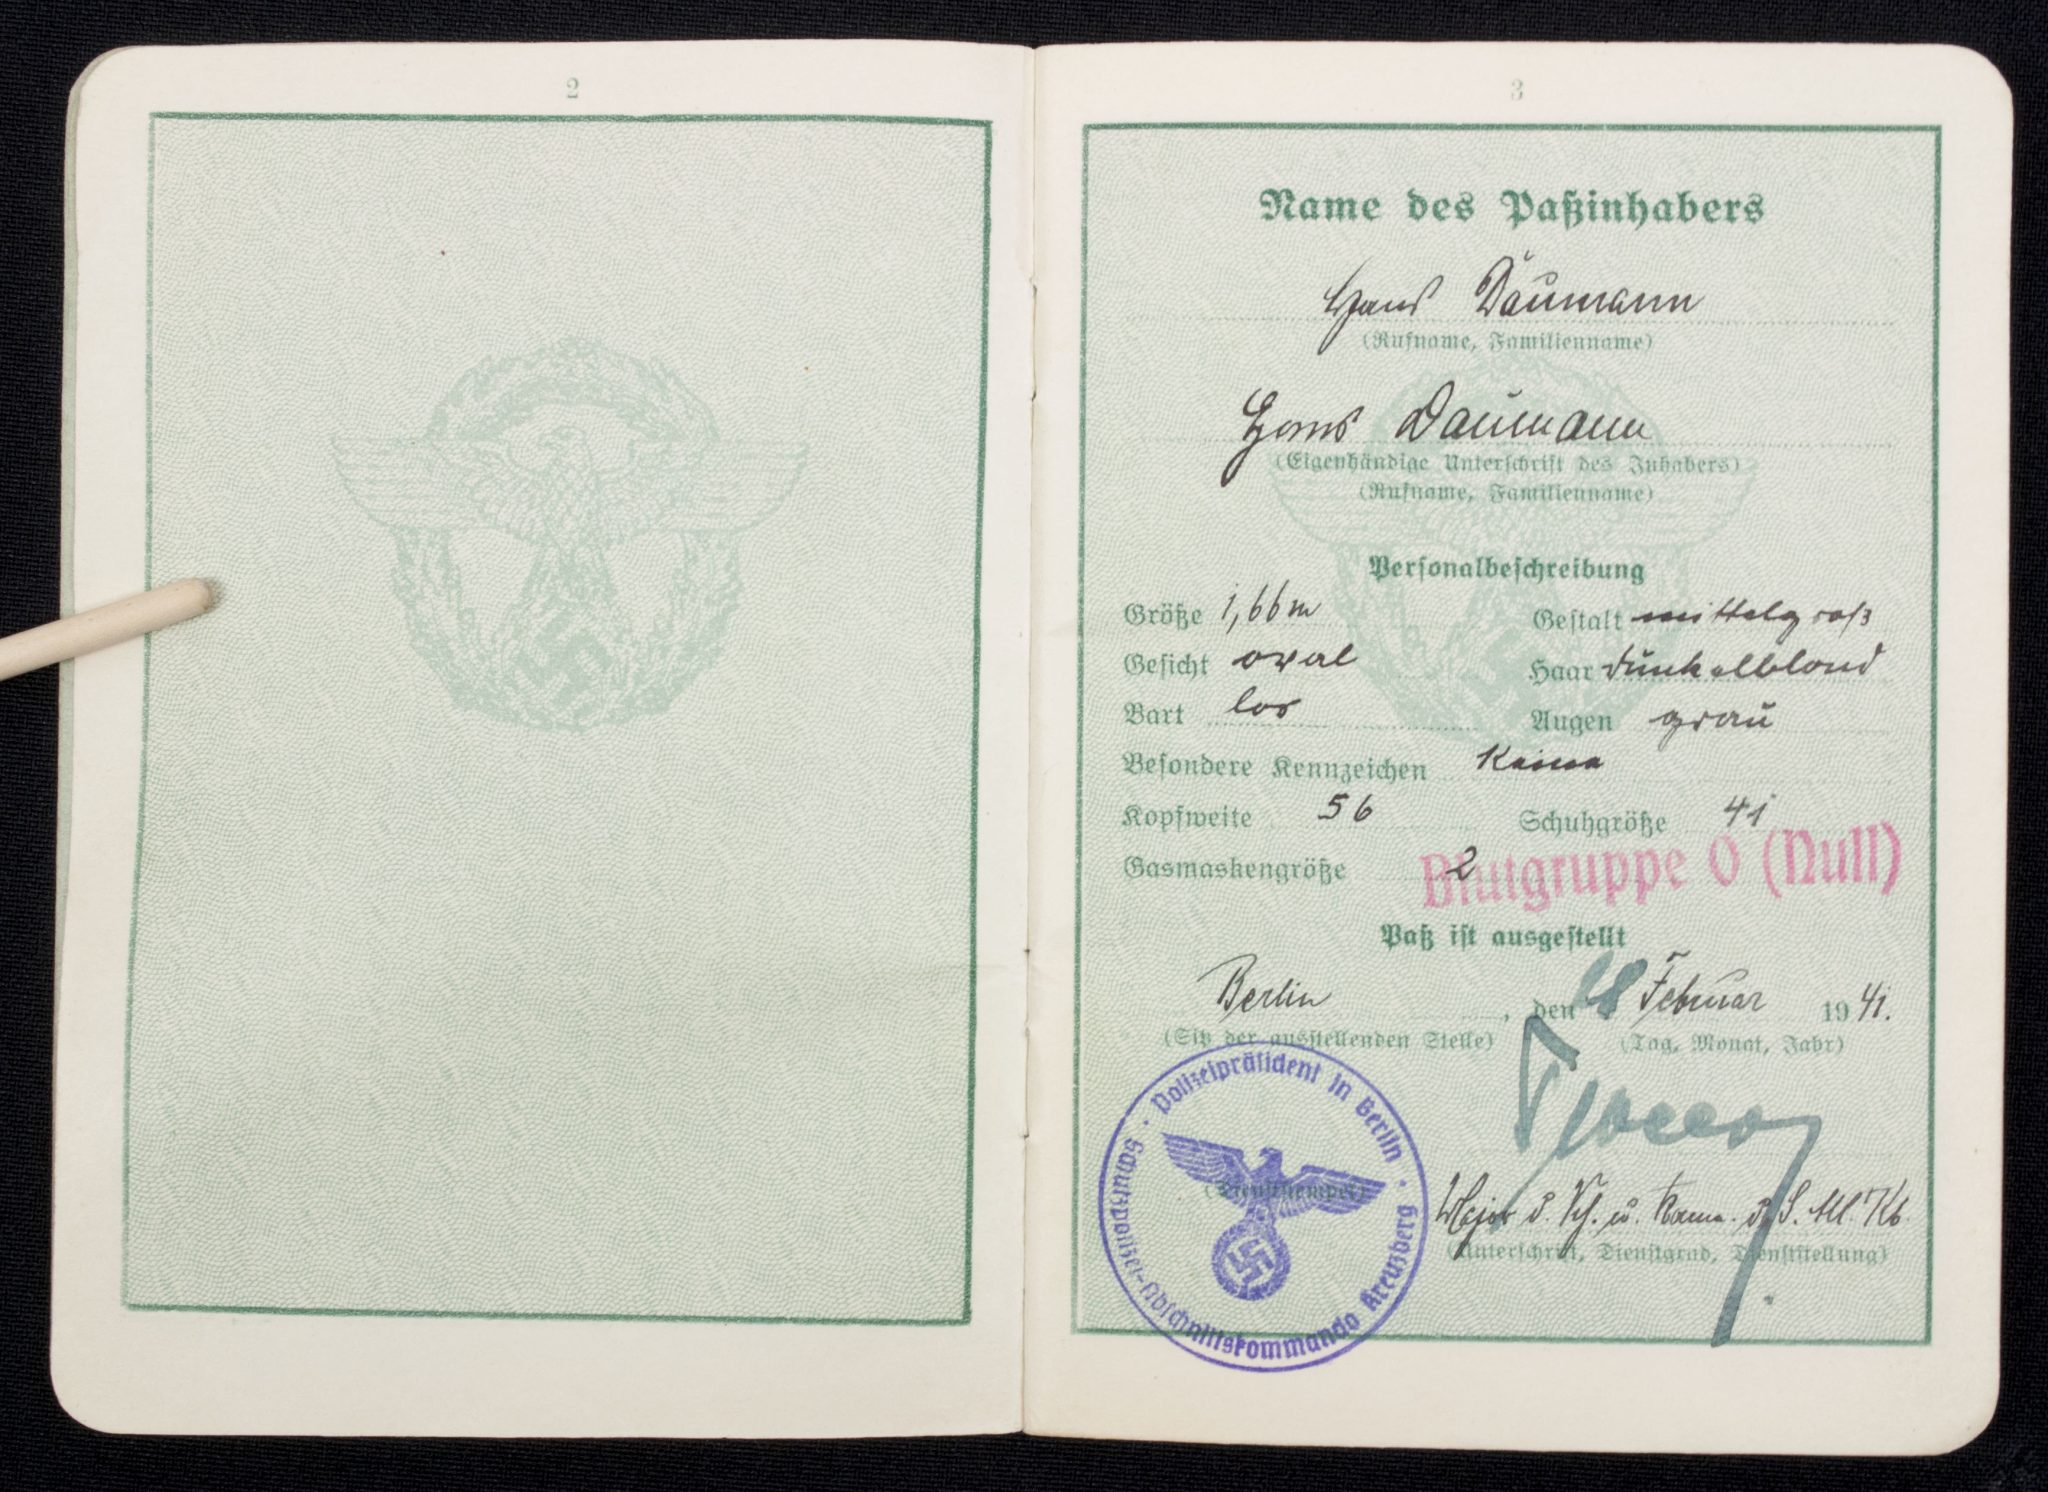 2
3
Name des Paßinhabers
Hans Daumann
(Rufname, Familienname)
Hans Daumann
(Eigenhändige Unterschrift des Inhabers)
(Rufname, Familienname)
Personalbeschreibung
Größe 1,66 m Gestalt mittelgroß
Gesicht oval Haar dunkelblond
Bart los Augen grau
Besondere Kennzeichen Keine
Kopfweite 56 Schuhgröße 41
Gasmaskengröße 2
Blutgruppe O (Null)
Paß ist ausgestellt
Berlin, den 18 Februar 1941.
(Sitz der ausstellenden Stelle) (Tag, Monat, Jahr)
Polizeipräsident in Berlin
Schutzpolizei-Abschnittskommando Kreuzberg
(Dienststempel)
Major d. Sch. u.
(Unterschrift, Dienstgrad, Dienststellung)